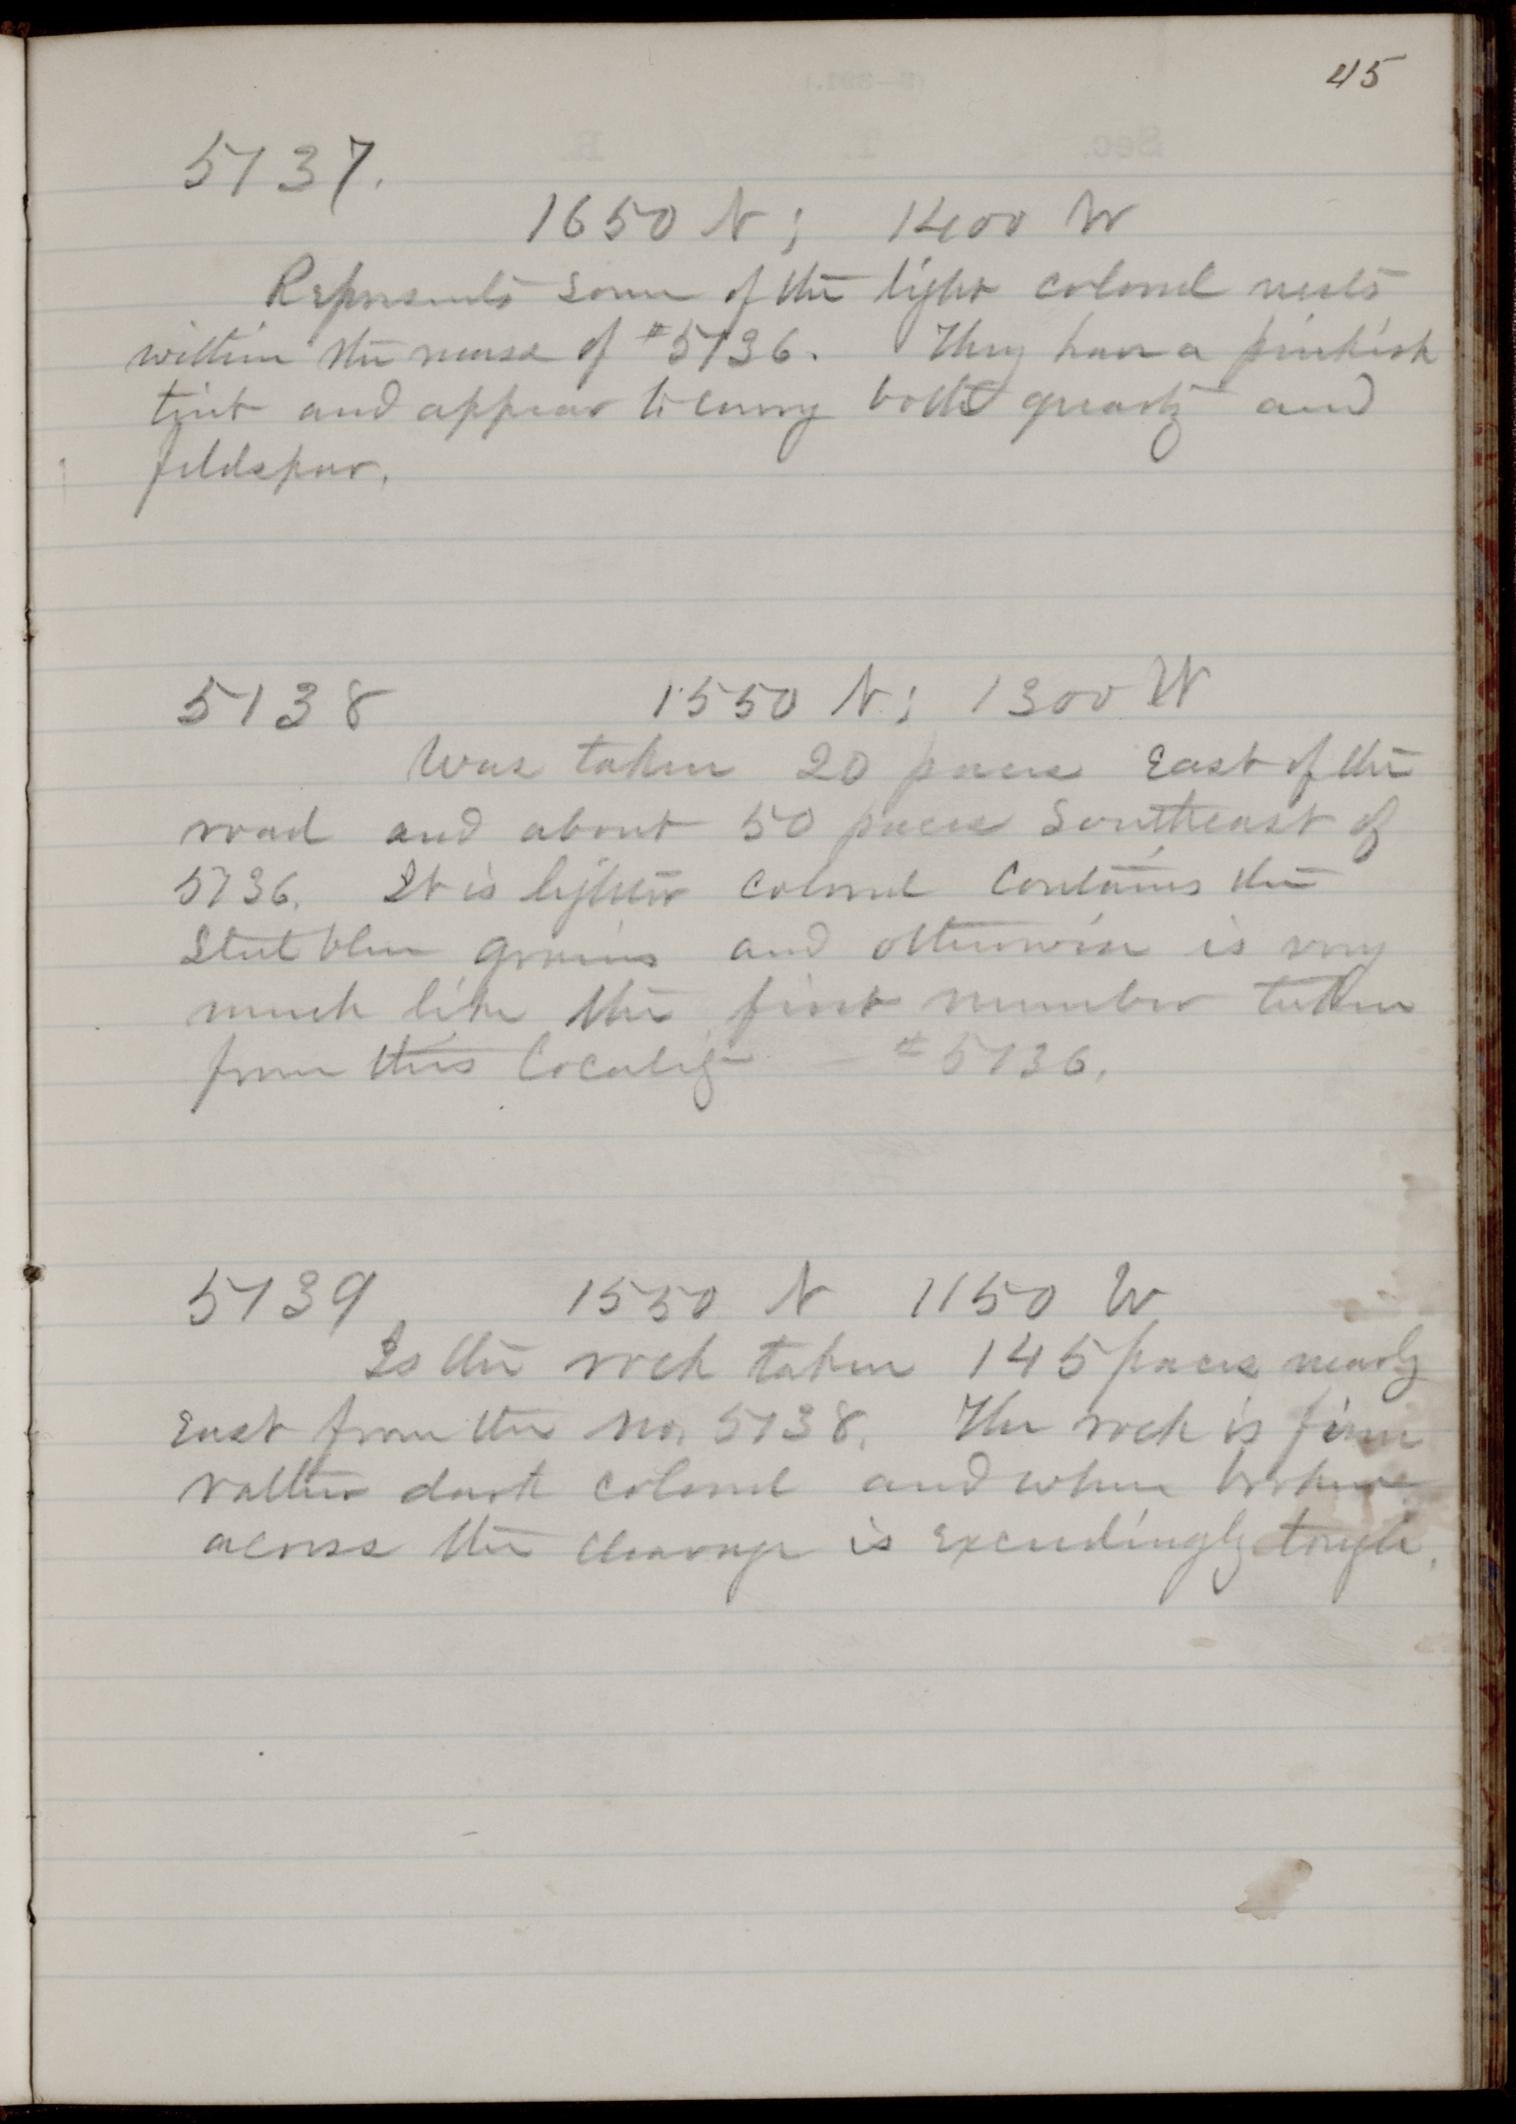 45
5137.
1650 N; 1400 W
Represents some of the light colored nests
within the mass of #5136. They have a pinkish
tint and appear to carry both quartz and
feldspar.
5138 1550 N; 1300 W
Was taken 20 paces East of the
road and about 50 paces Southeast of
5136. It is lighter colored contains the
Steel blue grains and otherwise is very
much like the first number taken
from this locality - #5136.
5139 1550 N 1150 W
Is the rock taken 145 paces nearly
East from the No. 5138. The rock is fine
rather dark colored and when broken
across the cleavage is exceedingly tough.